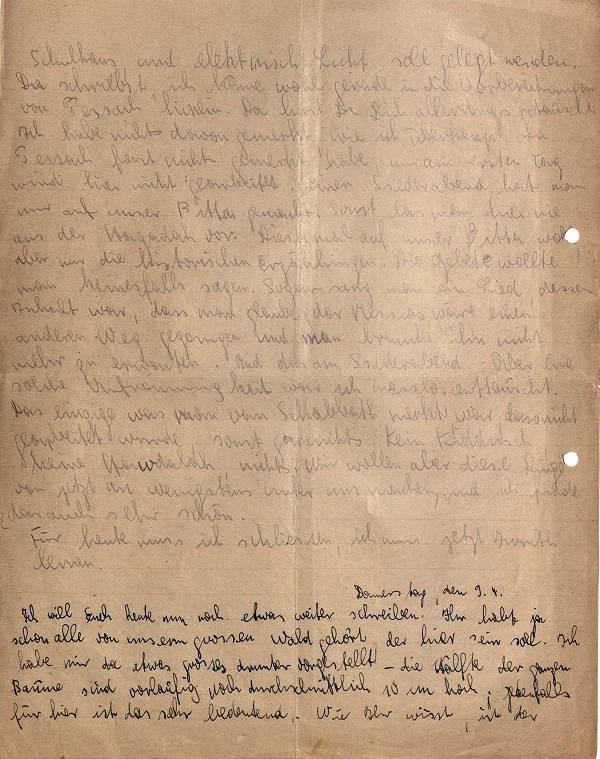 Schulhaus und elektrisch Licht soll gelegt werden.
Du schreibst, ich käme wohl gerade in die Vorbereitungen
von Pessach hinein. Da hast Du Dich allerdings getäuscht
Ich habe nicht davon gemerkt, wie ich überhaupt von
Pessach fast nicht gemerkt habe, nur am ersten Tag
wird hier nicht gearbeitet. Einen Ssederabend hat man
nur auf unser Bitten gemacht. Sonst las man hier nie
aus der Hagadah vor. Diesesmal auf unser Bitten wohl
aber nur die historischen Erzählungen. Die Gebete wollte
man keinesfalls sagen. Sogar sang man ein Lied, dessen
Inhalt war, dass man glaube der Messias wäre einen
anderen Weg gegangen und man brauche ihn nicht
mehr zu erwarten. Und das am Ssederabend. Über eine
solche Unfrommigkeit war ich masslos enttäuscht.
Das einzige was man vom Schabbath merkte war dass nicht
gearbeitet wurde, sonst garnichts. Kein Kiddusch
keine Hawdalah, nichts. Wir wollen aber diese Dinge
von jetzt an wenigstens unter uns machen, und ich finde
das auch sehr schön.
Für heute muss ich schliessen, ich muss jetzt Iwrith
lernen.
Donnerstag, den 9.4.
Ich will Euch heute nun noch etwas weiter schreiben. Ihr habt ja
schon alle von unserm grossen Wald gehört, der hier sein soll. Ich
habe mir da etwas grosses drunter vorgestellt - die Hälfte der ganzen
Bäume sind vorläufig noch durchschnittlich 10 cm hoch, jedenfalls
für hier ist das sehr bedeutend. Wie Ihr wisst, ist der